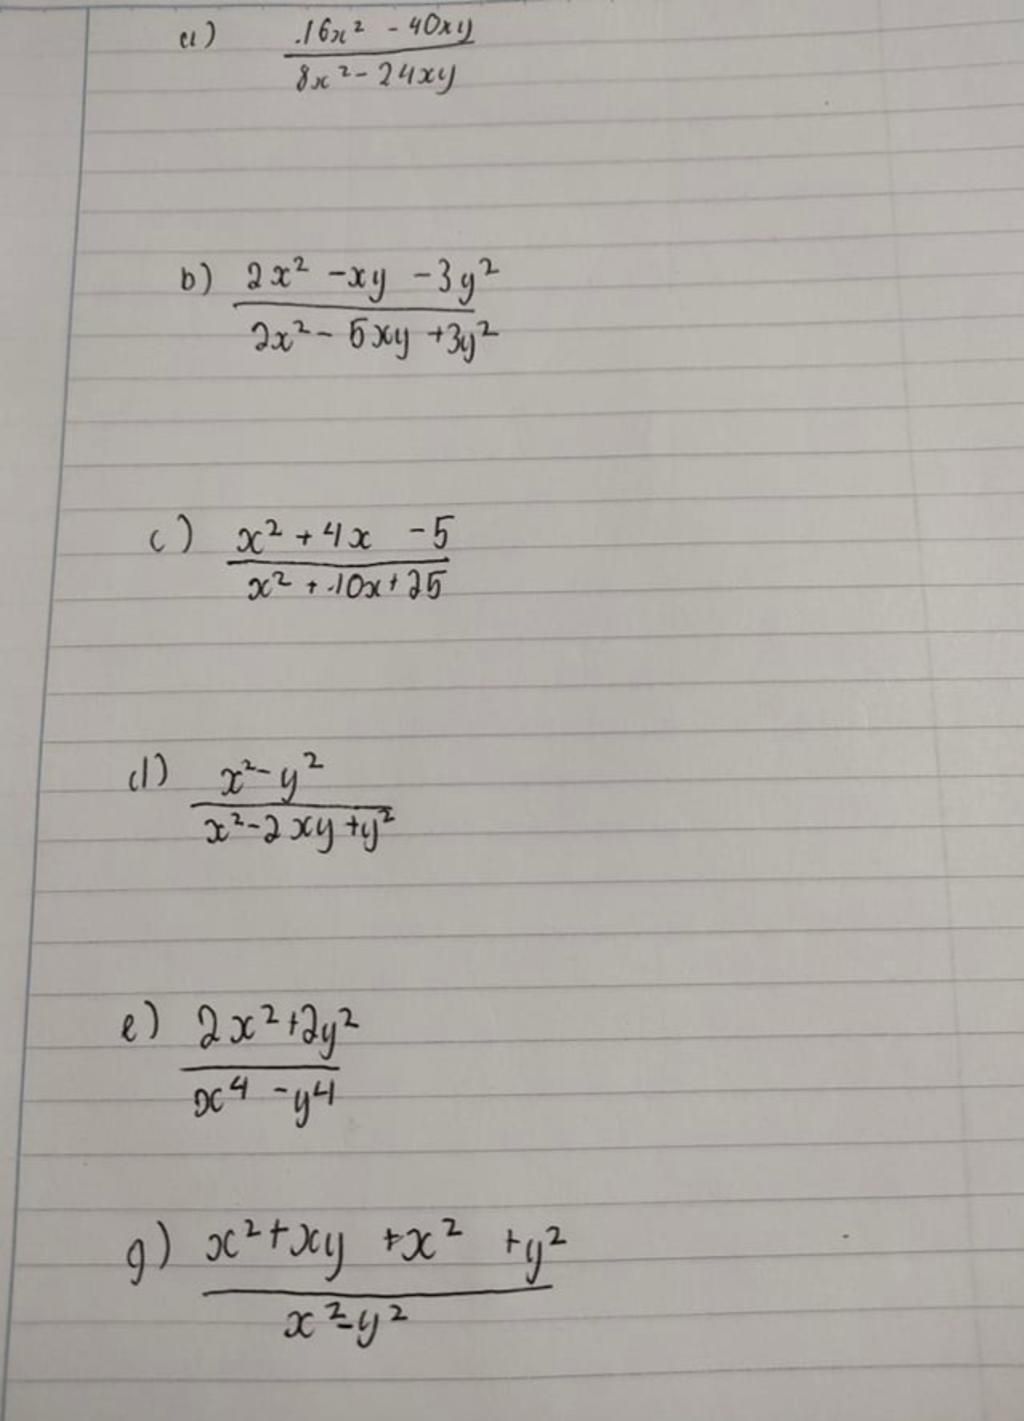 a) 16x² - 40xy
8x² - 24xy
b) 2x² - xy - 3y²
2x² - 5xy + 3y²
c) x² + 4x - 5
x² + 10x + 25
d) x² - y²
x² - 2xy + y²
e) 2x² + 2y²
x⁴ - y⁴
g) x² + xy + x² + y²
x² - y²